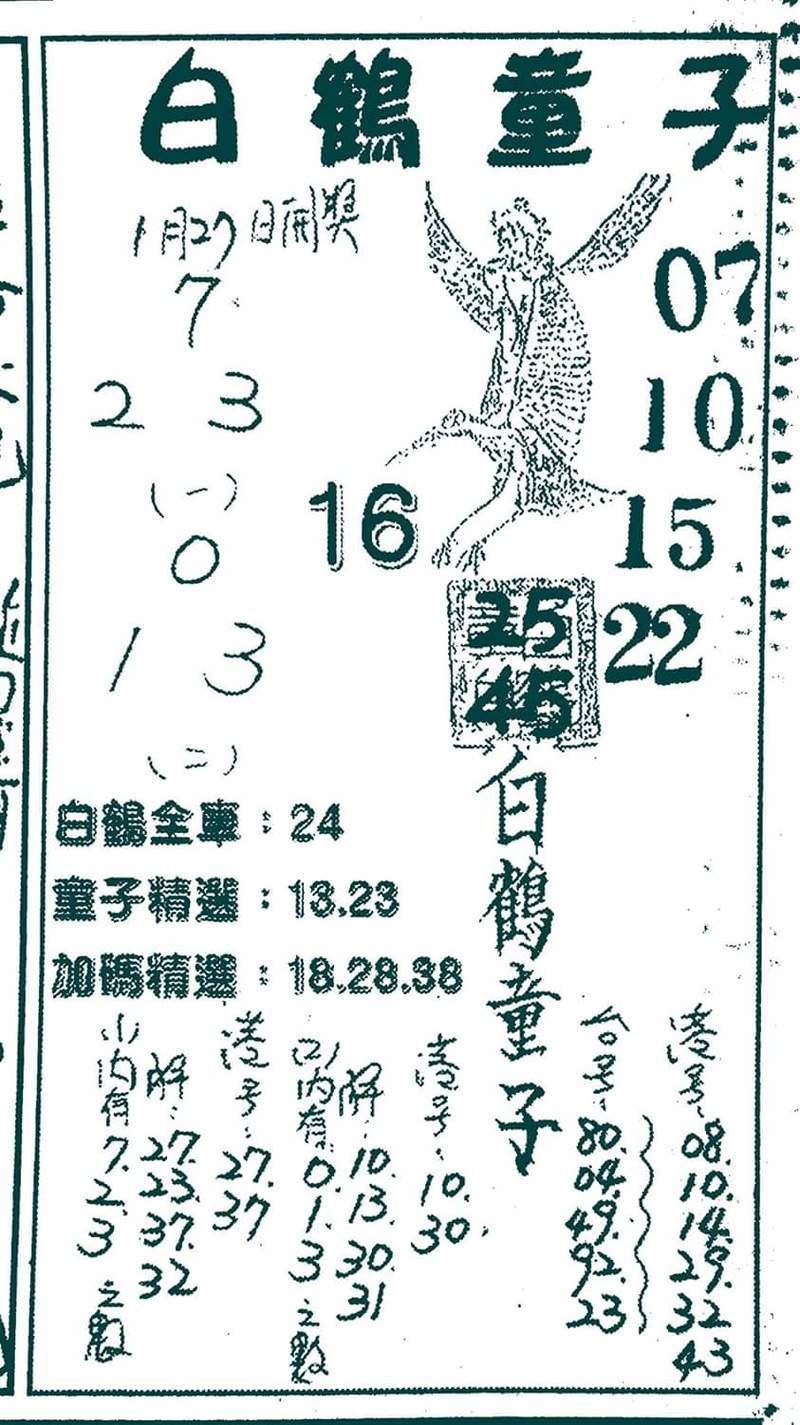 白鶴童子
1月27日開獎
7
2 3
(一)
0
1 3
(二)
07
10
15
22
16
25
45
白鶴童子
白鶴全車：24
童子精選：13.23
加碼精選：18.28.38
(1)內有 7. 2. 3 之數
解：27. 23. 37. 32
港号：27. 37
(2)內有 0. 1. 3 之數
解：10. 13. 30. 31
港号：10. 30.
台号：80. 04. 49. 92. 23
港号：08. 10. 14. 29. 32 43